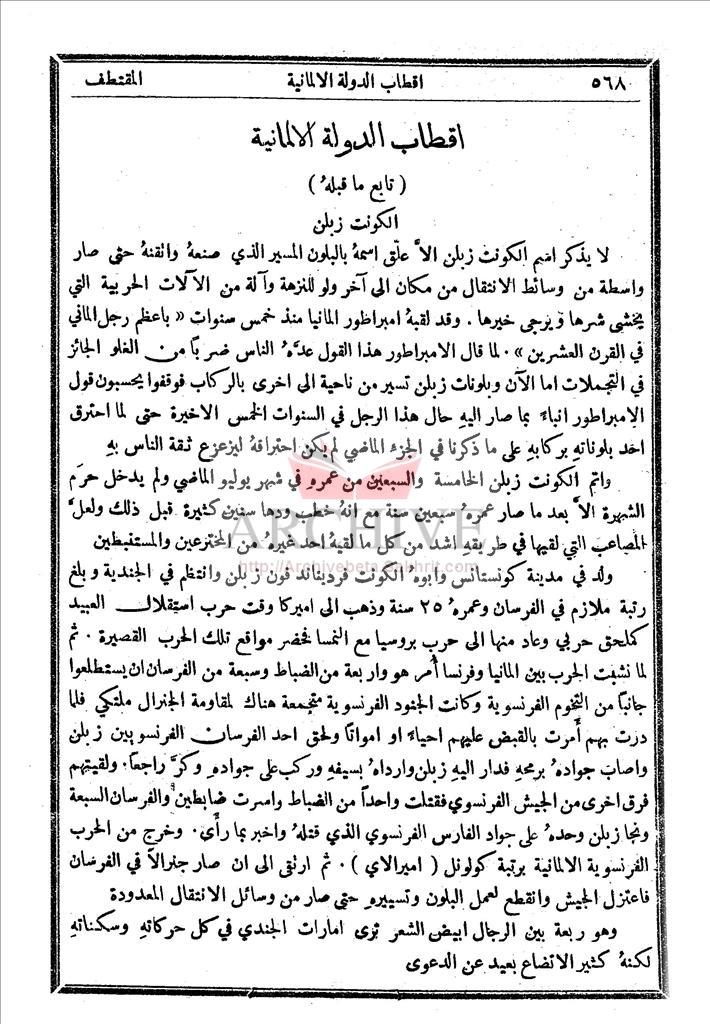 ٥٦٨ اقطاب الدولة الالمانية المقتطف
اقطاب الدولة الالمانية
( تابع ما قبلهُ )
الكونت زبلن
لا يذكر اسم الكونت زبلن الاَّ علق اسمهُ بالبلون المسير الذي صنعهُ واتقنهُ حتى صار
واسطة من وسائط الانتقال من مكان الى آخر ولو للنزهة وآلة من الآلات الحربية التي
يخشى شرها ويرجى خيرها . وقد لقبهُ امبراطور المانيا منذ خمس سنوات « باعظم رجل الماني
في القرن العشرين » . لما قال الامبراطور هذا القول عدَّهُ الناس ضربًا من الغلو الجائز
في التجملات اما الآن وبلونات زبلن تسير من ناحية الى اخرى بالركاب فوقفوا يحسبون قول
الامبراطور انباءً بما صار اليهِ حال هذا الرجل في السنوات الخمس الاخيرة حتى لما احترق
احد بلوناتهِ بركابهِ على ما ذكرنا في الجزء الماضي لم يكن احتراقهُ ليزعزع ثقة الناس بهِ
واتم الكونت زبلن الخامسة والسبعين من عمرهِ في شهر يوليو الماضي ولم يدخل حرَم
الشهرة الاَّ بعد ما صار عمرهُ سبعين سنة مع انهُ خطب ودها سنين كثيرة قبل ذلك ولعلَّ
المصاعب التي لقيها في طريقهِ اشد من كل ما لقيهُ احد غيرهُ من المخترعين والمستنبطين
ARCHIVE
http://Archivebeta.Sakhrit.com
ولد في مدينة كونستانس وابوهُ الكونت فردينالد فون زبلن وانتظم في الجندية وبلغ
رتبة ملازم في الفرسان وعمرهُ ٢٥ سنة وذهب الى اميركا وقت حرب استقلال العبيد
كملحق حربي وعاد منها الى حرب بروسيا مع النمسا فحضر مواقع تلك الحرب القصيرة . ثم
لما نشبت الحرب بين المانيا وفرنسا أُمر هو واربعة من الضباط وسبعة من الفرسان ان يستطلعوا
جانبًا من التخوم الفرنسوية وكانت الجنود الفرنسوية متجمعة هناك لمقاومة الجنرال ملتكي فلما
درت بهم أمرت بالقبض عليهم احياءً او امواتًا ولحق احد الفرسان الفرنسويين زبلن
واصاب جوادهُ برمحهِ فدار اليهِ زبلن وارداهُ بسيفهِ وركب على جوادهِ وكرَّ راجعًا . ولقيتهم
فرق اخرى من الجيش الفرنسوي فقتلت واحدًا من الضباط واسرت ضابطين والفرسان السبعة
ونجا زبلن وحدهُ على جواد الفارس الفرنسوي الذي قتلهُ واخبر بما رأى . وخرج من الحرب
الفرنسوية الالمانية برتبة كولونل ( اميرالاي ) . ثم ارتقى الى ان صار جنرالاً في الفرسان
فاعتزل الجيش وانقطع لعمل البلون وتسييرهِ حتى صار من وسائل الانتقال المعدودة
وهو ربعة بين الرجال ابيض الشعر تزى امارات الجندي في كل حركاتهِ وسكناتهِ
لكنهُ كثير الاتضاع بعيد عن الدعوى